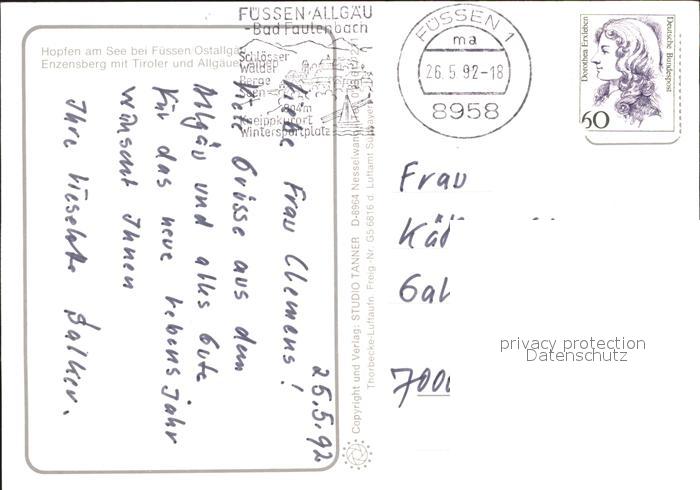 FÜSSEN/ALLGÄU
-Bad Faulenbach
Schlösser
Wälder
Berge
Seen
Kneippkurort
Wintersportplatz
FÜSSEN 1
ma
26.5.92-18
8958
Dorothea Erxleben
Deutsche Bundespost
60
Hopfen am See bei Füssen Ostallgäu
Enzensberg mit Tiroler und Allgäuer
25.5.92
Liebe Frau Clemens!
Viele Grüsse aus dem
Allgäu und alles Gute
für das neue Lebensjahr
wünscht Ihnen
Ihre Lieselotte
Copyright und Verlag: STUDIO TANNER D-8964 Nesselwang
Thorbecke-Luftaufn. Freig.-Nr. G5 6816 d. Luftamt Südbayern
Frau
privacy protection
Datenschutz